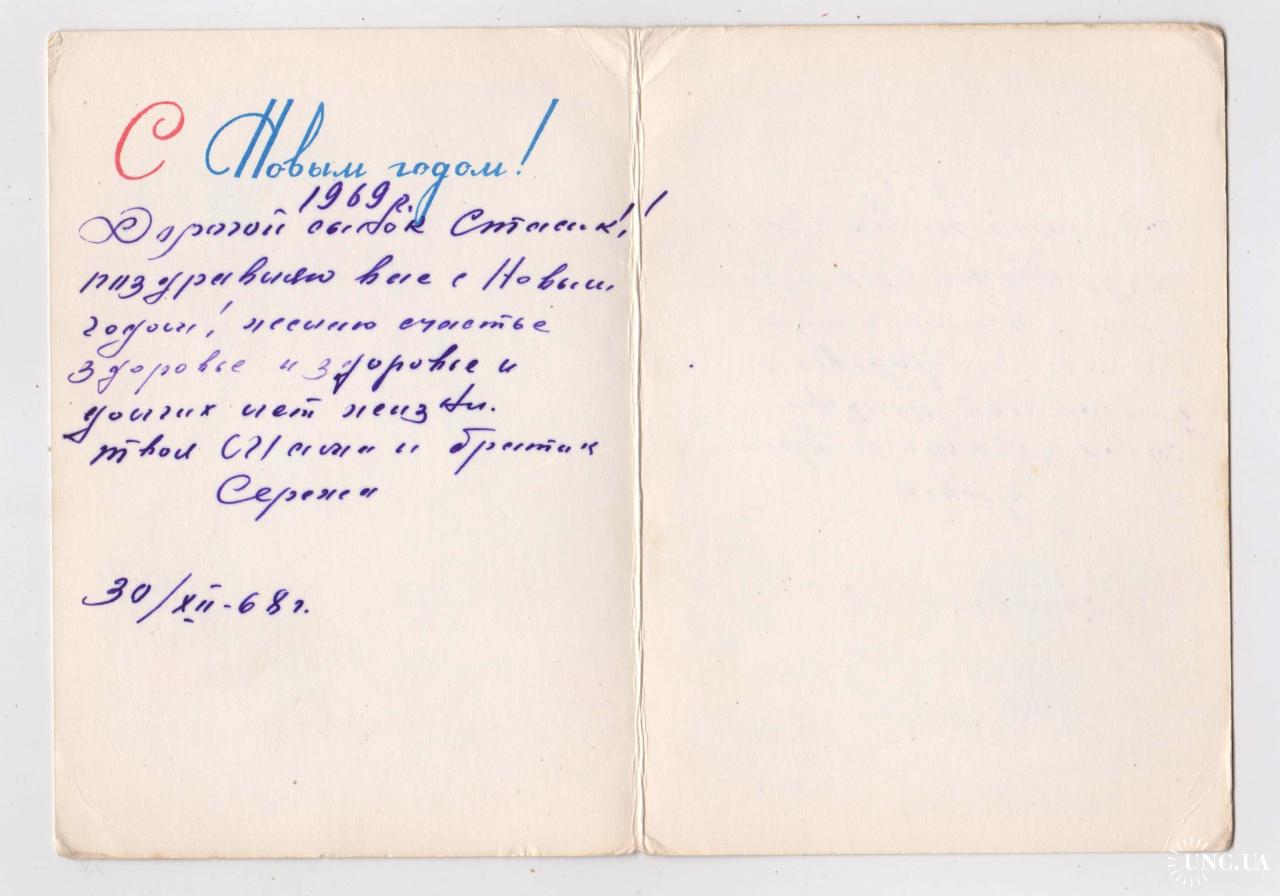 С Новым годом!
1969 г.
Дорогой сынок Стасик!!
поздравляю вас с Новым
годом! желаю счастье
здоровье и здоровье и
долгих лет жизни.
твоя Мама и братик
Сережа
30/XII-68 г.
UNC.UA